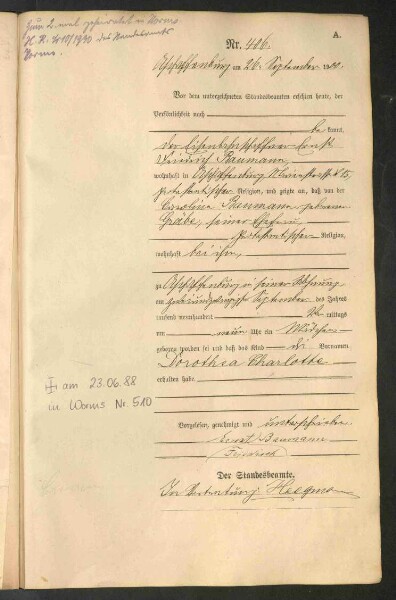 Zum 2. mal geheiratet in Worms
H.R. 410/1930 des Standesamts
Worms.
A.
Nr. 406.
Aschaffenburg am 26. September 1900.
Vor dem unterzeichneten Standesbeamten erschien heute, der
Persönlichkeit nach
bekannt,
der Eisenbahnschaffner Ernst
Friedrich Baumann,
wohnhaft in Aschaffenburg
protestantischer Religion, und zeigte an, daß von der
Carolina Baumann, geborene
Gräbe, seiner Ehefrau,
protestantischer Religion,
wohnhaft bei ihm,
zu Aschaffenburg in seiner Wohnung
am zweiundzwanzigsten September des Jahres
tausend neunhundert Vormittags
um neun Uhr ein Mädchen
geboren worden sei und daß das Kind die Vornamen
Dorothea Charlotte
erhalten habe
+ am 23.06.88
in Worms Nr. 510
Vorgelesen, genehmigt und unterschrieben
Ernst Baumann
Friedrich
Der Standesbeamte.
In Vertretung